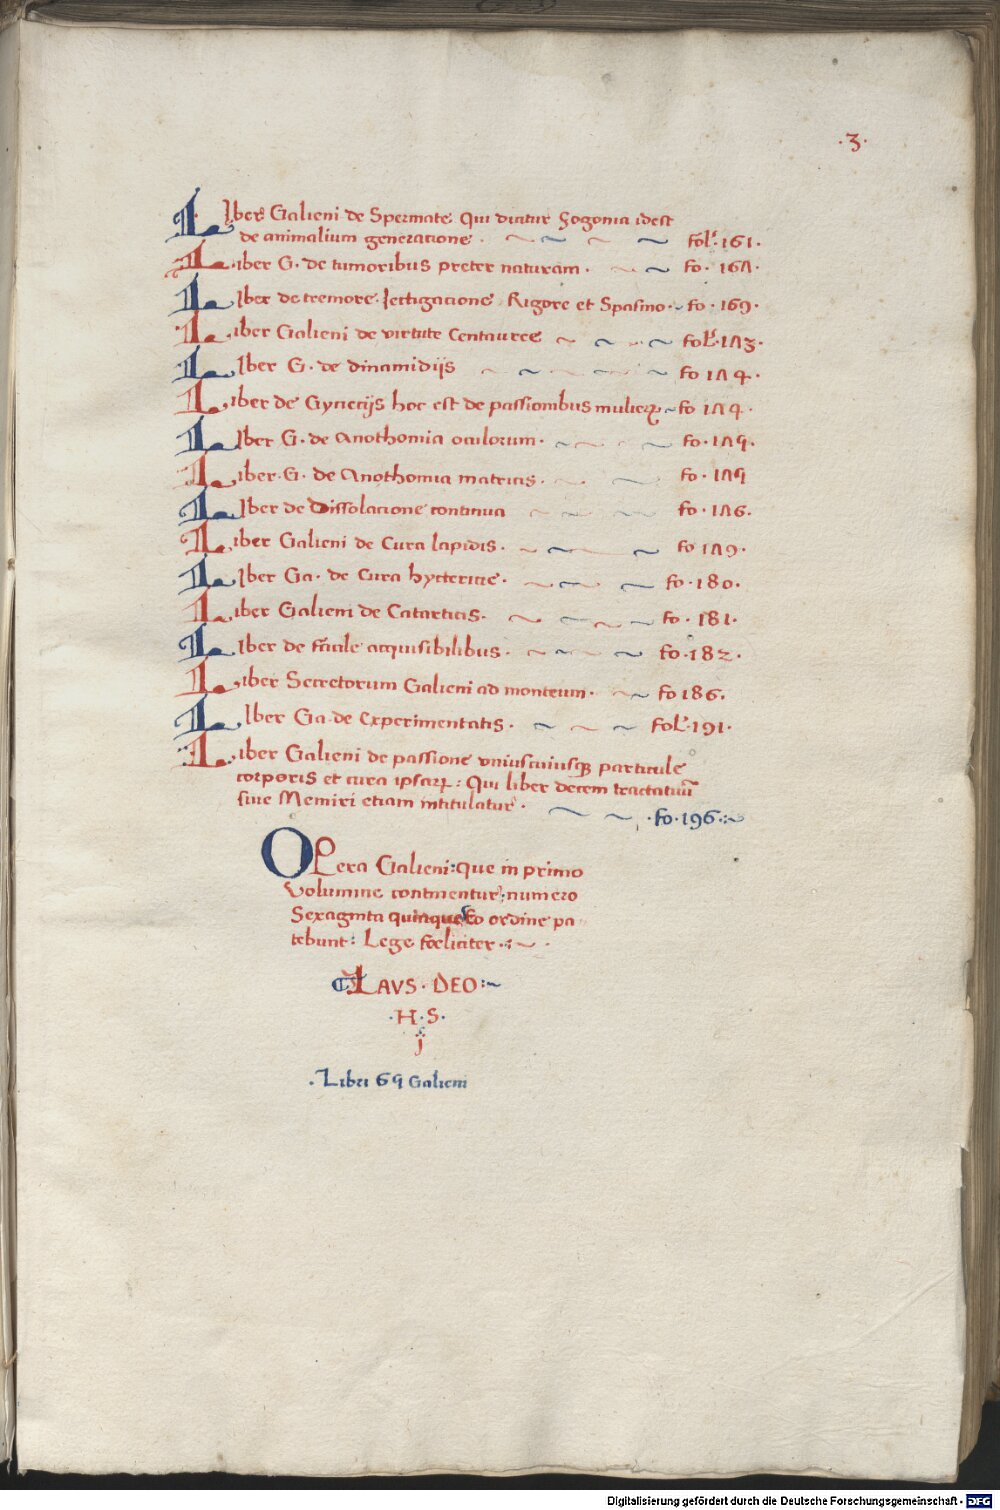 .3.
LIber Galieni de Spermate Qui dicitur Zogonia idest
de animalium generatione . fol. 161.
Liber G. de tumoribus preter naturam . fo. 167.
LIber de tremore . Iectigatione Rigore et Spasmo . fo. 169.
Liber Galieni de virtute Centauree fol. 173.
LIber G. de dinamidijs fo 174.
Liber de Gyneciis hoc est de passionibus mulierꝝ fo 174.
LIber G. de Anothomia oculorum . fo. 175.
Liber . G. de Anothomia matricis . fo. 175
LIber de Dissolatione continua fo. 176.
Liber Galieni de Cura lapidis . fo 179.
LIber Ga. de Cura hyctericie . fo. 180.
Liber Galieni de Catarticis. fo. 181.
LIber de facile acquisibilibus . fo. 182.
Liber Secretorum Galieni ad monteum . fo 186.
LIber Ga. de Experimentatis . fol. 191.
Liber Galieni de passione uniuscuiusqꝫ particule
corporis et cura ipsarꝝ : Qui liber decem tractatuū
siue Memiri etiam intitulatur . .fo. 196.
OPera Galieni : que in primo
Volumine continentur : numero
Sexaginta quinque Eo ordine pa
tebunt : Lege foeliciter .
LAVS . DEO :
.H.S.
j
. Libri 65 Galieni
Digitalisierung gefördert durch die Deutsche Forschungsgemeinschaft - DFG